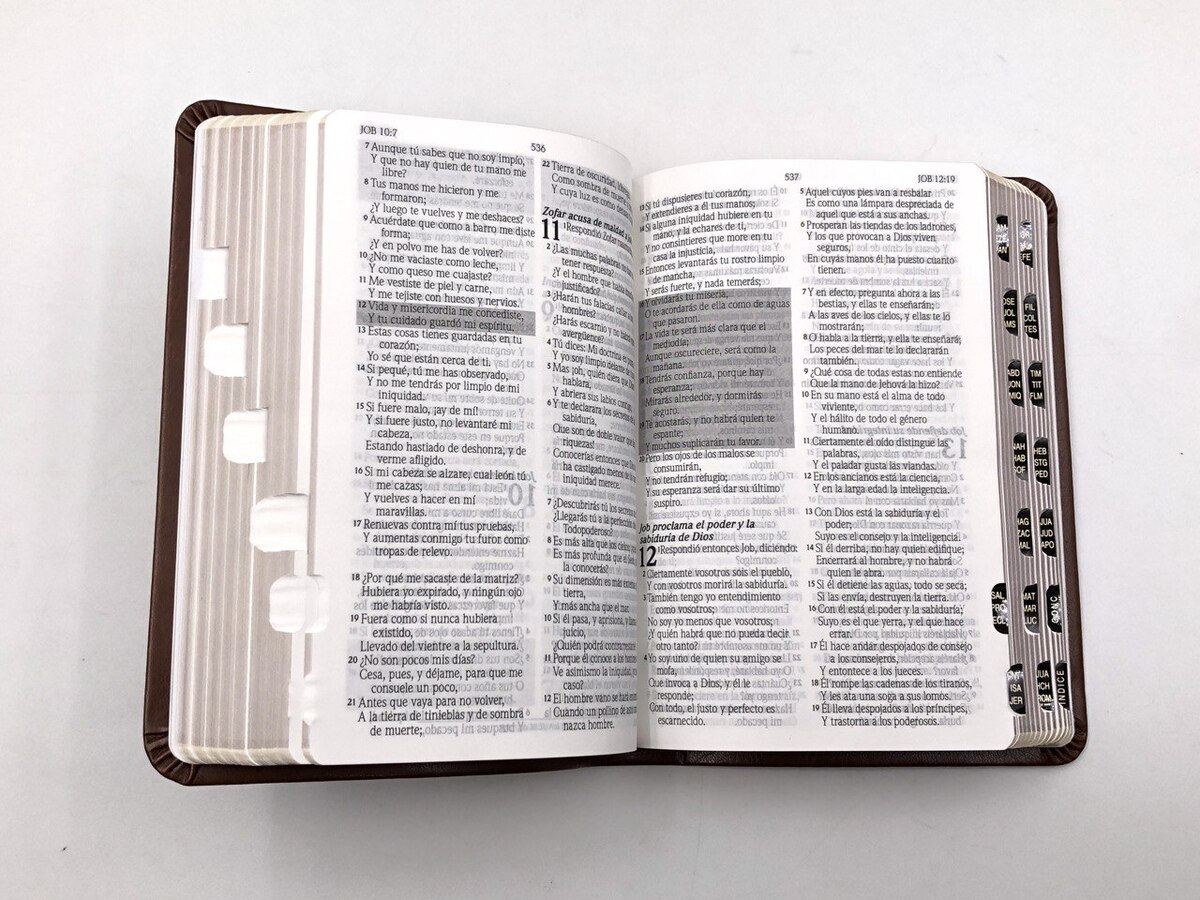 JOB 10:7
536
7 Aunque tú sabes que no soy impío,
Y que no hay quien de tu mano me
libre?
8 Tus manos me hicieron y me
formaron;
¿Y luego te vuelves y me deshaces?
9 Acuérdate que como a barro me diste
forma;
¿Y en polvo me has de volver?
10 ¿No me vaciaste como leche,
Y como queso me cuajaste?
11 Me vestiste de piel y carne,
Y me tejiste con huesos y nervios.
12 Vida y misericordia me concediste,
Y tu cuidado guardó mi espíritu.
13 Estas cosas tienes guardadas en tu
corazón;
Yo sé que están cerca de ti.
14 Si pequé, tú me has observado,
Y no me tendrás por limpio de mi
iniquidad.
15 Si fuere malo, ¡ay de mí!
Y si fuere justo, no levantaré mi
cabeza,
Estando hastiado de deshonra, y de
verme afligido.
16 Si mi cabeza se alzare, cual león tú
me cazas;
Y vuelves a hacer en mí
maravillas.
17 Renuevas contra mí tus pruebas,
Y aumentas conmigo tu furor como
tropas de relevo.
18 ¿Por qué me sacaste de la matriz?
Hubiera yo expirado, y ningún ojo
me habría visto.
19 Fuera como si nunca hubiera
existido,
Llevado del vientre a la sepultura.
20 ¿No son pocos mis días?
Cesa, pues, y déjame, para que me
consuele un poco,
21 Antes que vaya para no volver,
A la tierra de tinieblas y de sombra
de muerte;
22 Tierra de oscuridad,
Como sombra de muerte
Y cuya luz es como
Zofar acusa de maldad a
11 1 Respondió Zofar
2 ¿Las muchas palabras no
tener respuesta?
¿Y el hombre que habla
justificado?
3 ¿Harán tus falacias callar a
hombres?
¿Harás escarnio y no habrá
avergüence?
4 Tú dices: Mi doctrina es
Y yo soy limpio delante de
5 Mas ¡oh, quién diera que
hablara,
Y abriera sus labios
6 Y te declarara los secretos
sabiduría,
Que son de doble valor que
riquezas!
Conocerías entonces que
ha castigado menos de
iniquidad merece.
7 ¿Descubrirás tú los secretos
¿Llegarás tú a la perfección
Todopoderoso?
8 Es más alta que los cielos;
Es más profunda que el
la conocerás?
9 Su dimensión es más
tierra,
Y más ancha que el mar.
10 Si él pasa, y aprisiona, y
juicio,
¿Quién podrá
11 Porque él conoce a los
Ve asimismo la iniquidad,
caso?
12 El hombre vano se hará
Cuando un pollino de
nazca hombre.
537
JOB 12:19
13 Si tú dispusieres tu corazón,
Y extendieres a él tus manos;
14 Si alguna iniquidad hubiere en tu
mano, y la echares de ti,
Y no consintieres que more en tu
casa la injusticia,
15 Entonces levantarás tu rostro limpio
de mancha,
Y serás fuerte, y nada temerás;
Y olvidarás tu miseria,
O te acordarás de ella como de aguas
que pasaron.
La vida te será más clara que el
mediodía;
Aunque oscureciere, será como la
mañana.
18 Tendrás confianza, porque hay
esperanza;
Mirarás alrededor, y dormirás
seguro.
19 Te acostarás, y no habrá quien te
espante;
Y muchos suplicarán tu favor.
20 Pero los ojos de los malos se
consumirán,
Y no tendrán refugio;
Y su esperanza será dar su último
suspiro.
Job proclama el poder y la
sabiduría de Dios
12 1 Respondió entonces Job, diciendo:
2 Ciertamente vosotros sois el pueblo,
Y con vosotros morirá la sabiduría.
3 También tengo yo entendimiento
como vosotros;
No soy yo menos que vosotros;
¿Y quién habrá que no pueda decir
otro tanto?
4 Yo soy uno de quien su amigo se
mofa,
Que invoca a Dios, y él le
responde;
Con todo, el justo y perfecto es
escarnecido.
5 Aquel cuyos pies van a resbalar
Es como una lámpara despreciada de
aquel que está a sus anchas.
6 Prosperan las tiendas de los ladrones,
Y los que provocan a Dios viven
seguros,
En cuyas manos él ha puesto cuanto
tienen.
7 Y en efecto, pregunta ahora a las
bestias, y ellas te enseñarán;
A las aves de los cielos, y ellas te lo
mostrarán;
8 O habla a la tierra, y ella te enseñará;
Los peces del mar te lo declararán
también.
9 ¿Qué cosa de todas estas no entiende
Que la mano de Jehová la hizo?
10 En su mano está el alma de todo
viviente,
Y el hálito de todo el género
humano.
11 Ciertamente el oído distingue las
palabras,
Y el paladar gusta las viandas.
12 En los ancianos está la ciencia,
Y en la larga edad la inteligencia.
13 Con Dios está la sabiduría y el
poder;
Suyo es el consejo y la inteligencia.
14 Si él derriba, no hay quien edifique;
Encerrará al hombre, y no habrá
quien le abra.
15 Si él detiene las aguas, todo se seca;
Si las envía, destruyen la tierra.
16 Con él está el poder y la sabiduría;
Suyo es el que yerra, y el que hace
errar.
17 Él hace andar despojados de consejo
a los consejeros,
Y entontece a los jueces.
18 Él rompe las cadenas de los tiranos,
Y les ata una soga a sus lomos.
19 Él lleva despojados a los príncipes,
Y trastorna a los poderosos.
FIL
COL
TES
TIM
TIT
FLM
NAH
HAB
SOF
HEB
STG
PED
HAG
ZAC
MAL
JUA
JUD
APO
SAL
PRO
ECL
MAT
MAR
LUC
CONC
ISA
JER
JUA
HCH
ROM
ÍNDICE